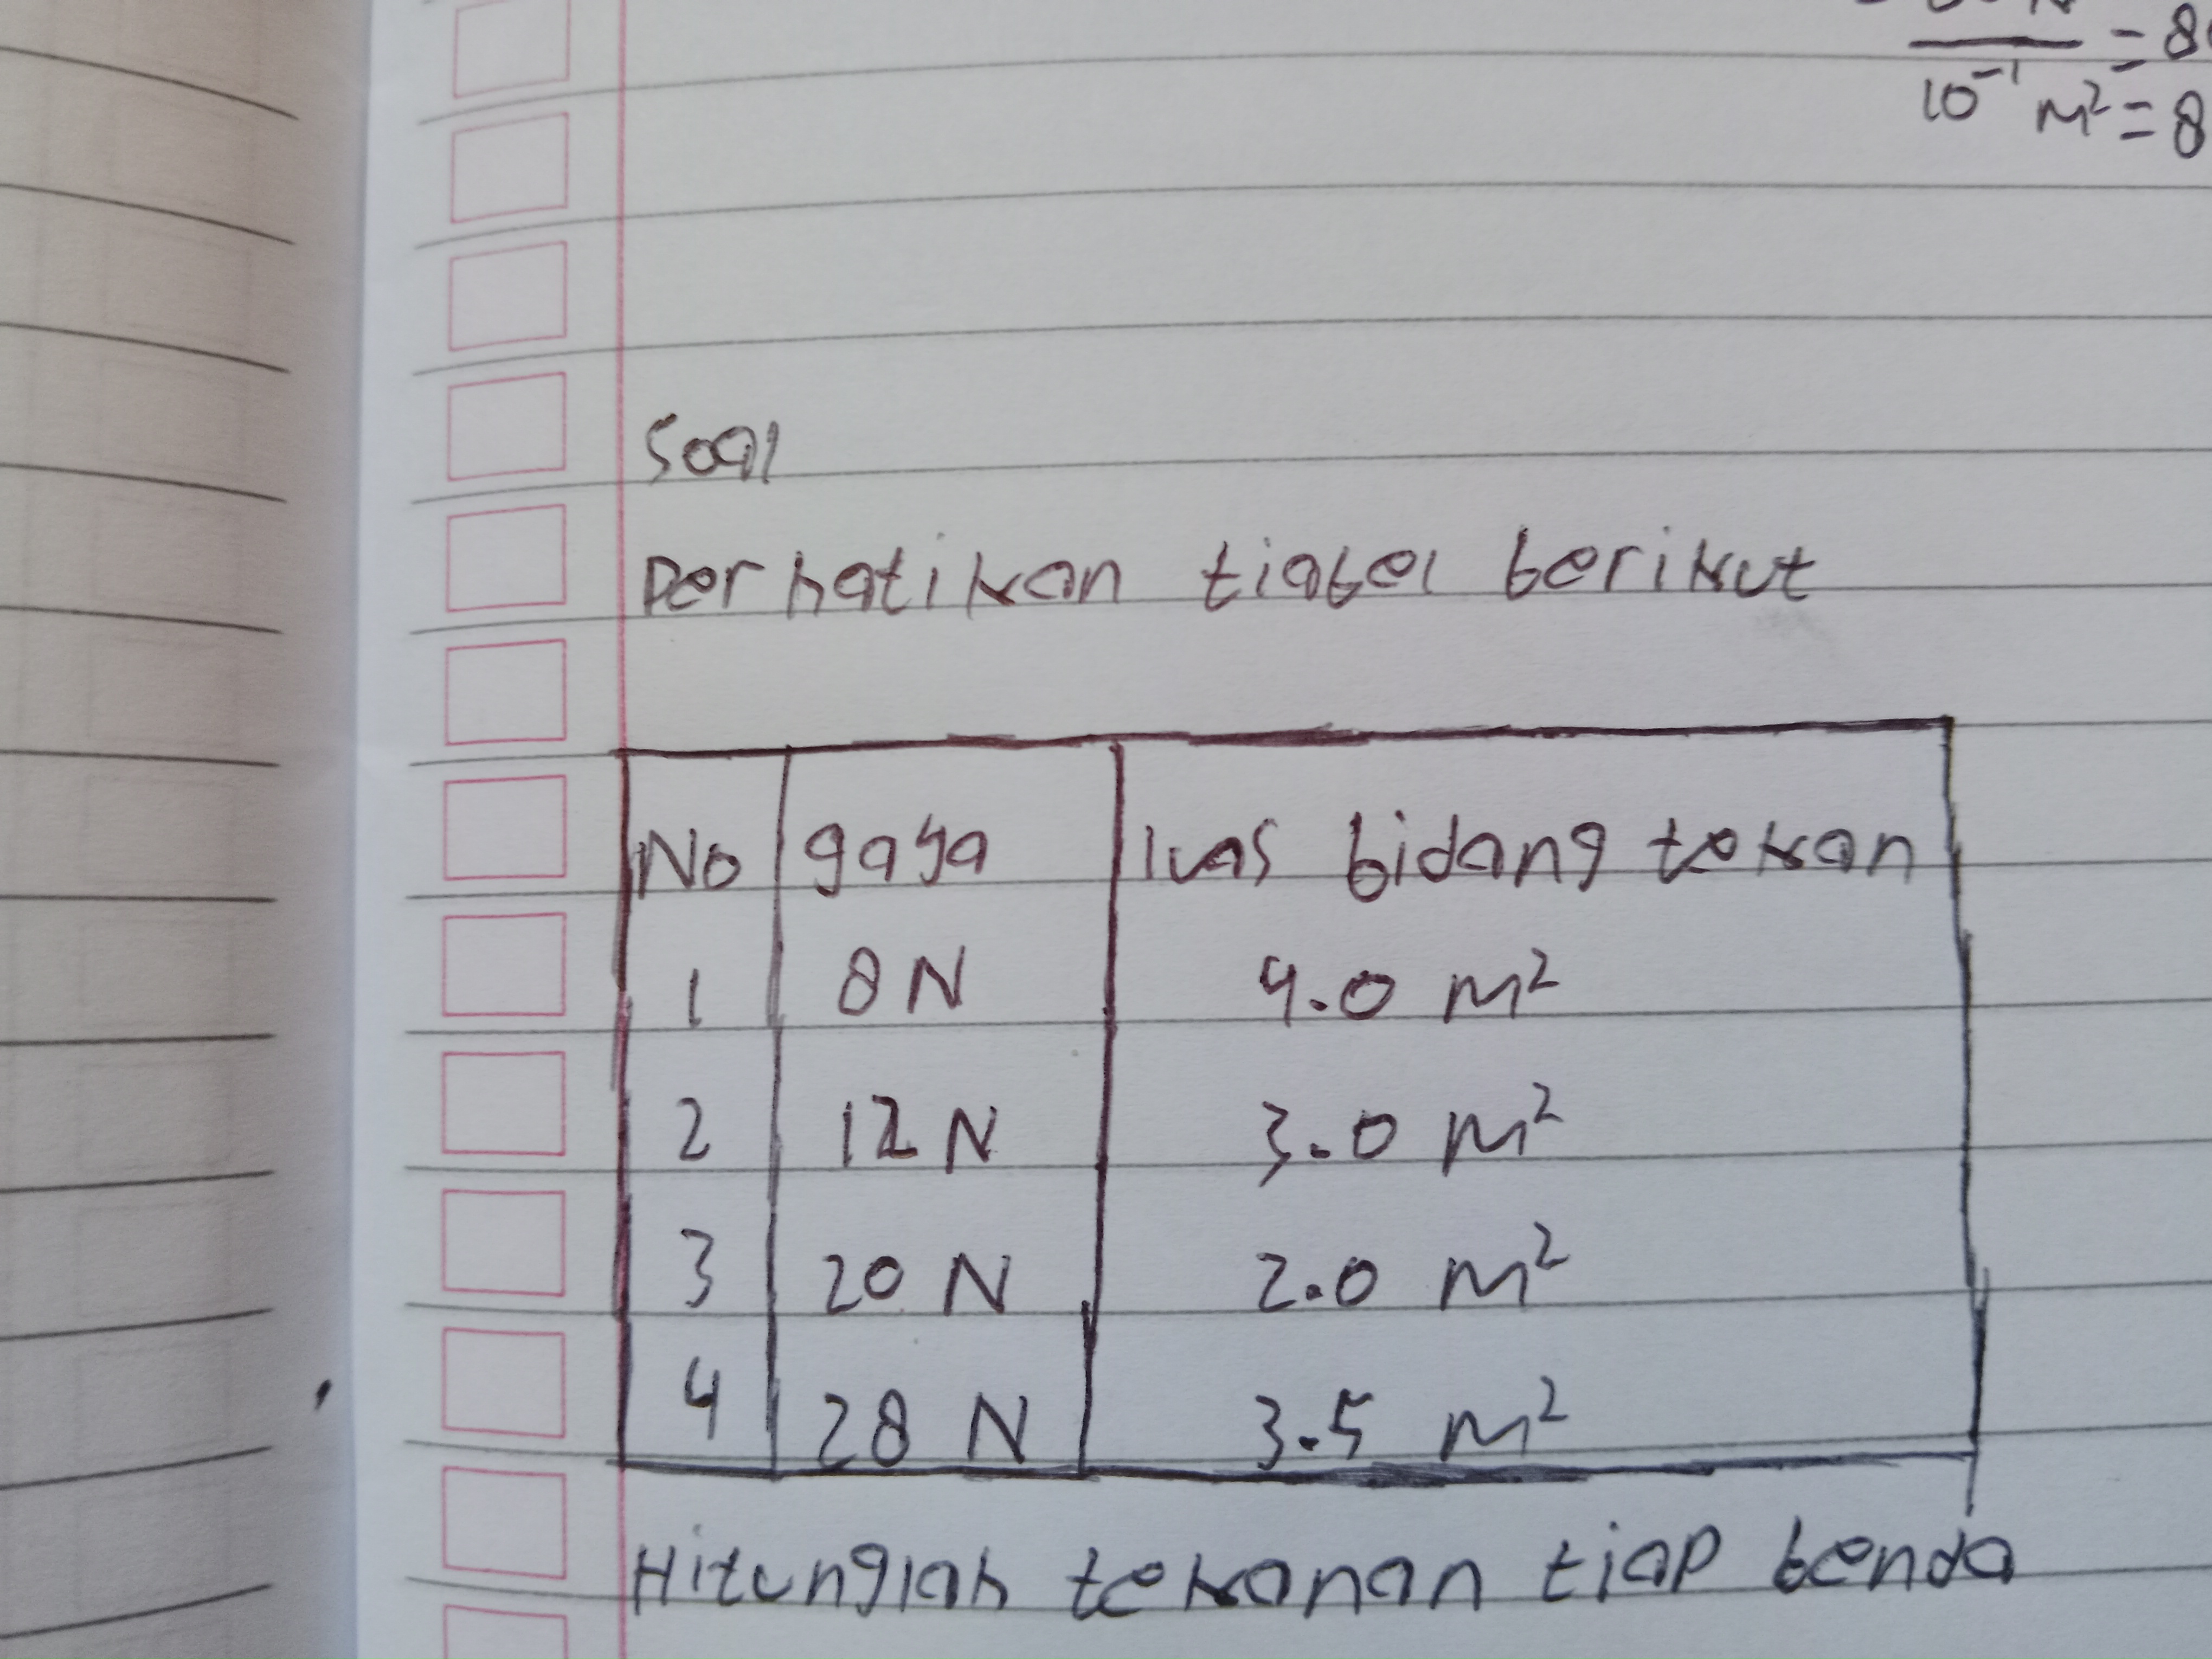 = 8
10⁻¹ m² = 8
Soal
Perhatikan tiabel berikut
No gaya luas bidang tekan
1 8 N 4.0 m²
2 12 N 3.0 m²
3 20 N 2.0 m²
4 28 N 3.5 m²
Hitunglah tekanan tiap benda